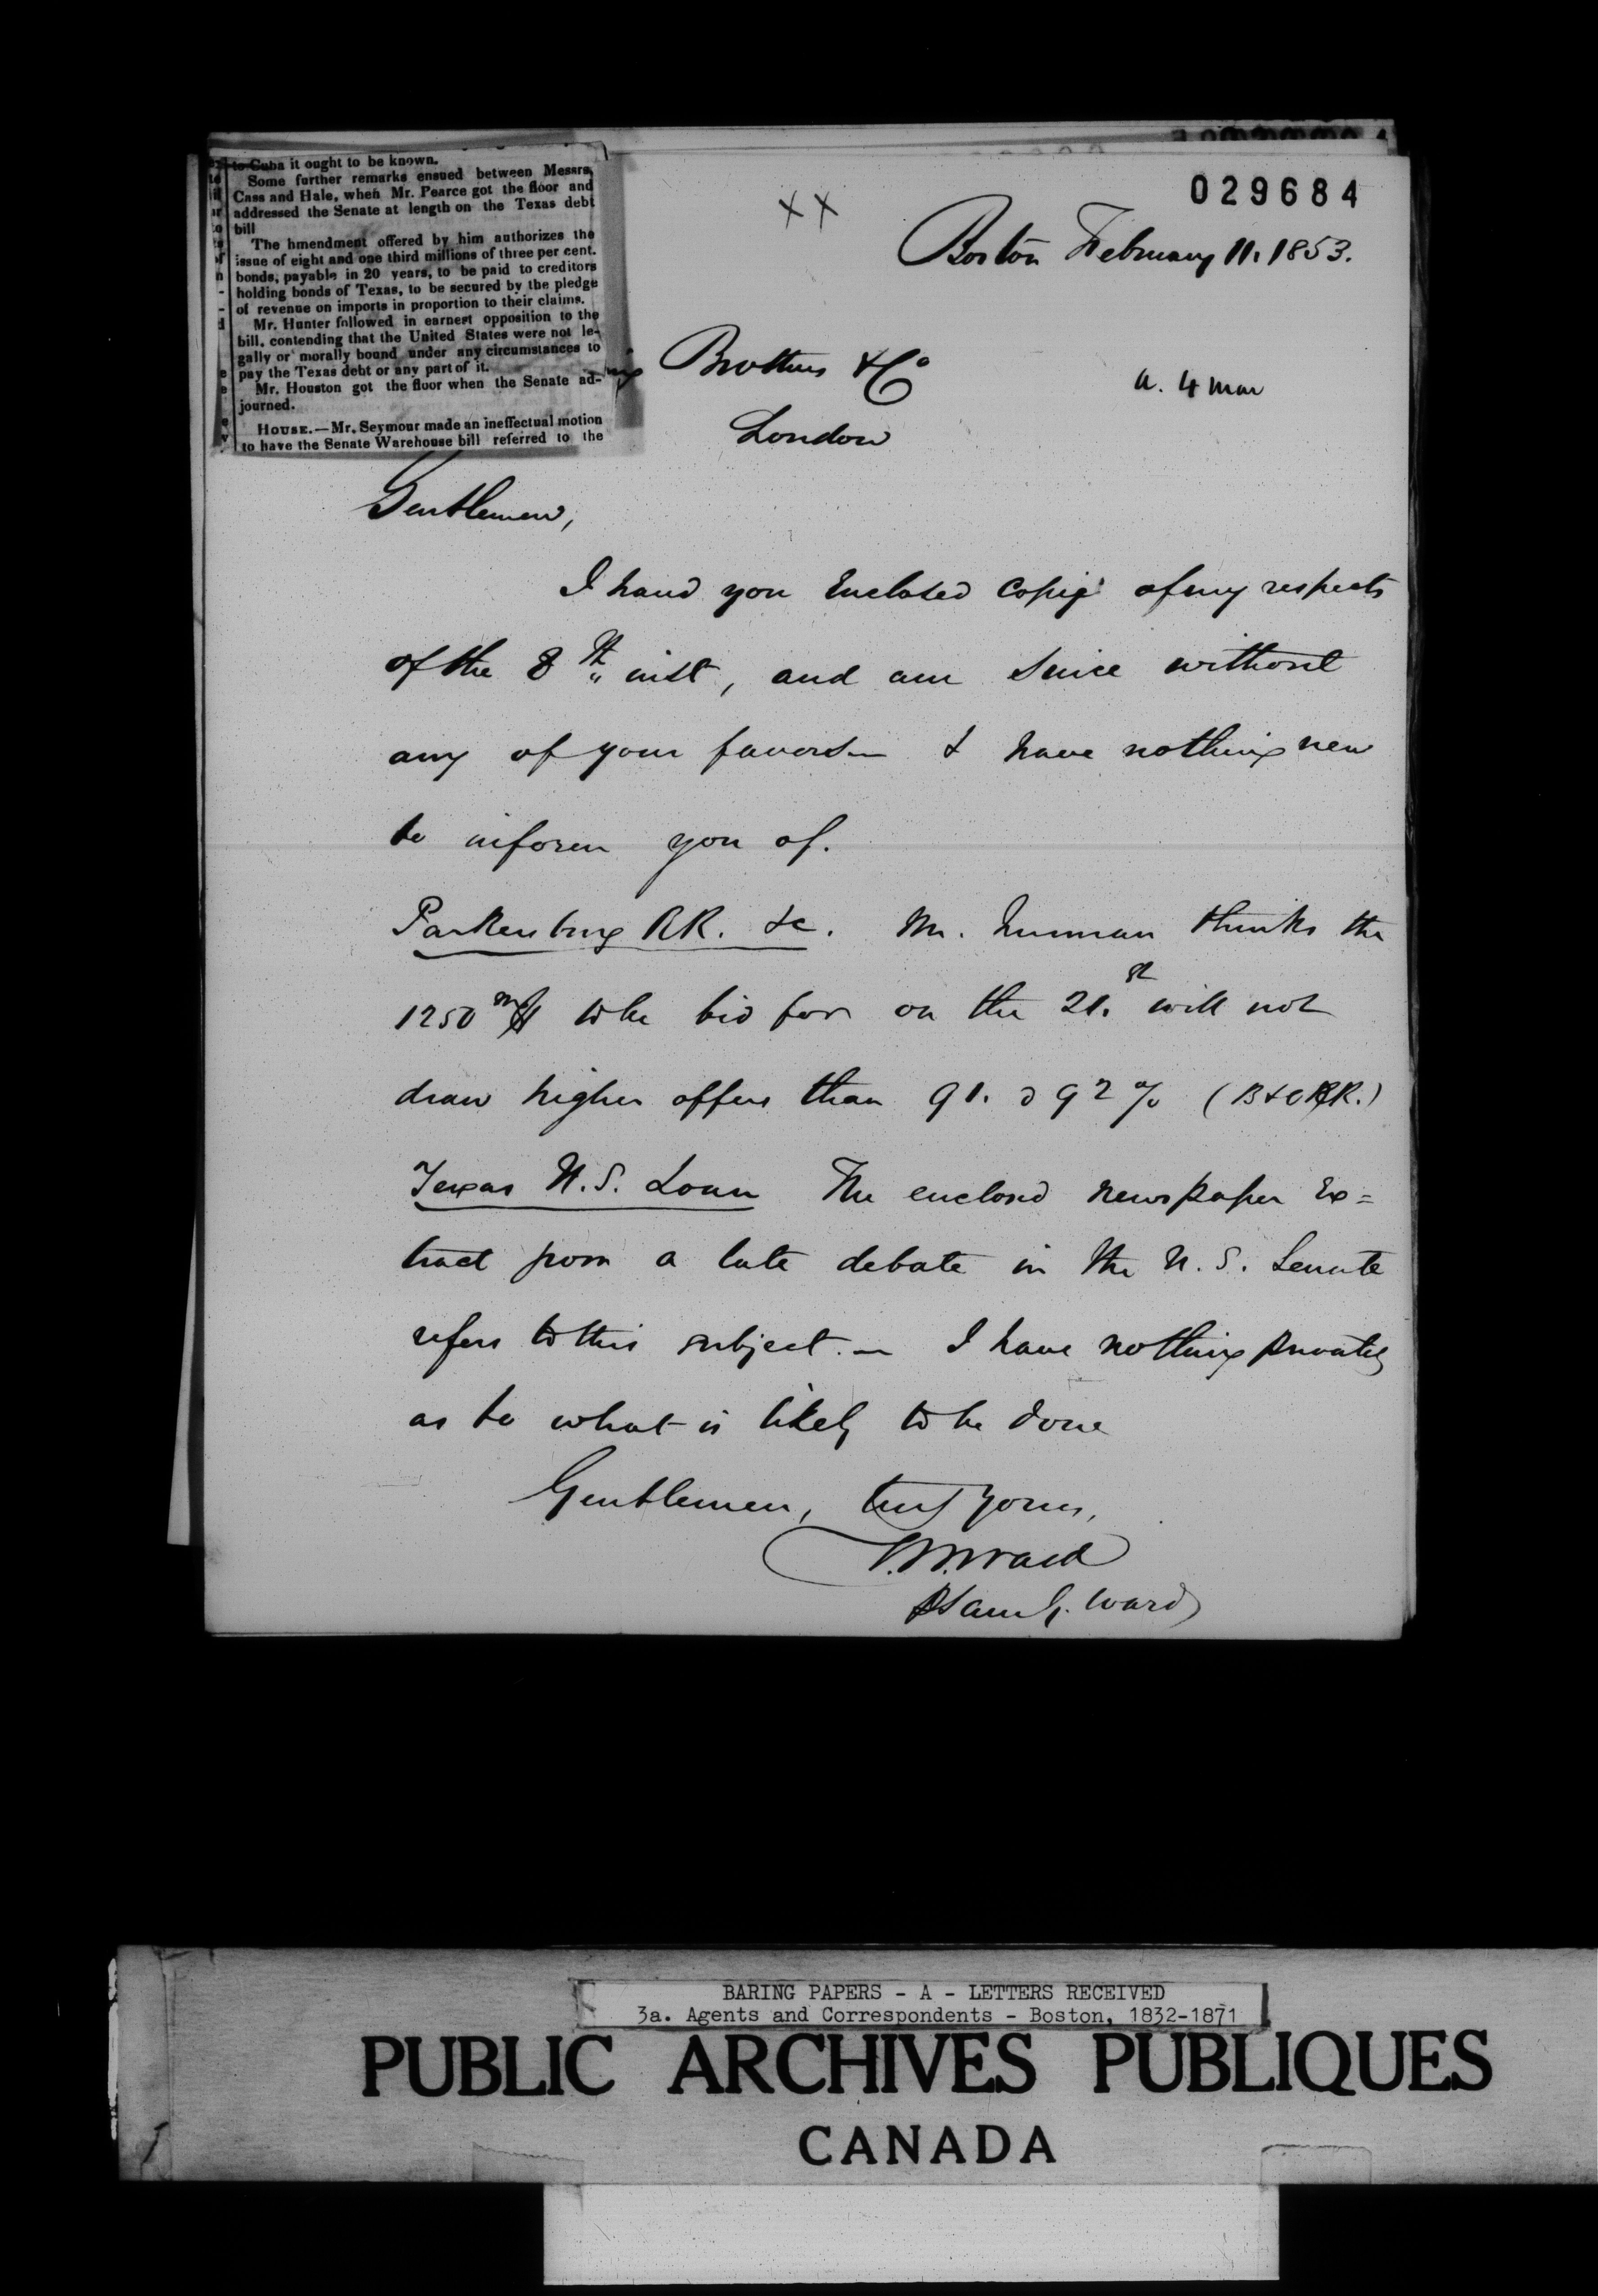 to Cuba it ought to be known.
Some further remarks ensued between Messrs.
Cass and Hale, when Mr. Pearce got the floor and
addressed the Senate at length on the Texas debt
bill
The hmendment offered by him authorizes the
issue of eight and one third millions of three per cent.
bonds, payable in 20 years, to be paid to creditors
holding bonds of Texas, to be secured by the pledge
of revenue on imports in proportion to their claims.
Mr. Hunter followed in earnest opposition to the
bill, contending that the United States were not le-
gally or morally bound under any circumstances to
pay the Texas debt or any part of it.
Mr. Houston got the floor when the Senate ad-
journed.
HOUSE.—Mr. Seymour made an ineffectual motion
to have the Senate Warehouse bill referred to the
029684
XX
Boston February 11. 1853.
Brothers & Co
a. 4 Mar
London
Gentlemen,
I hand you Enclosed Copy of my respects
of the 8th inst, and am since without
any of your favors— & have nothing new
to inform you of.
Parkersburg RR. &c. Mr. thinks the
1250 m/$ to be bid for on the 21.st will not
draw higher offers than 91. @ 92 % (B & O RR.)
Texas U.S. Loan The enclosed newspaper Ex=
tract from a late debate in the U.S. Senate
refers to this subject.— I have nothing privately
as to what is likely to be done
Gentlemen, truly yours,
T. W. Ward
P Sam G. Ward
BARING PAPERS - A - LETTERS RECEIVED
3a. Agents and Correspondents - Boston, 1832-1871
PUBLIC ARCHIVES PUBLIQUES
CANADA